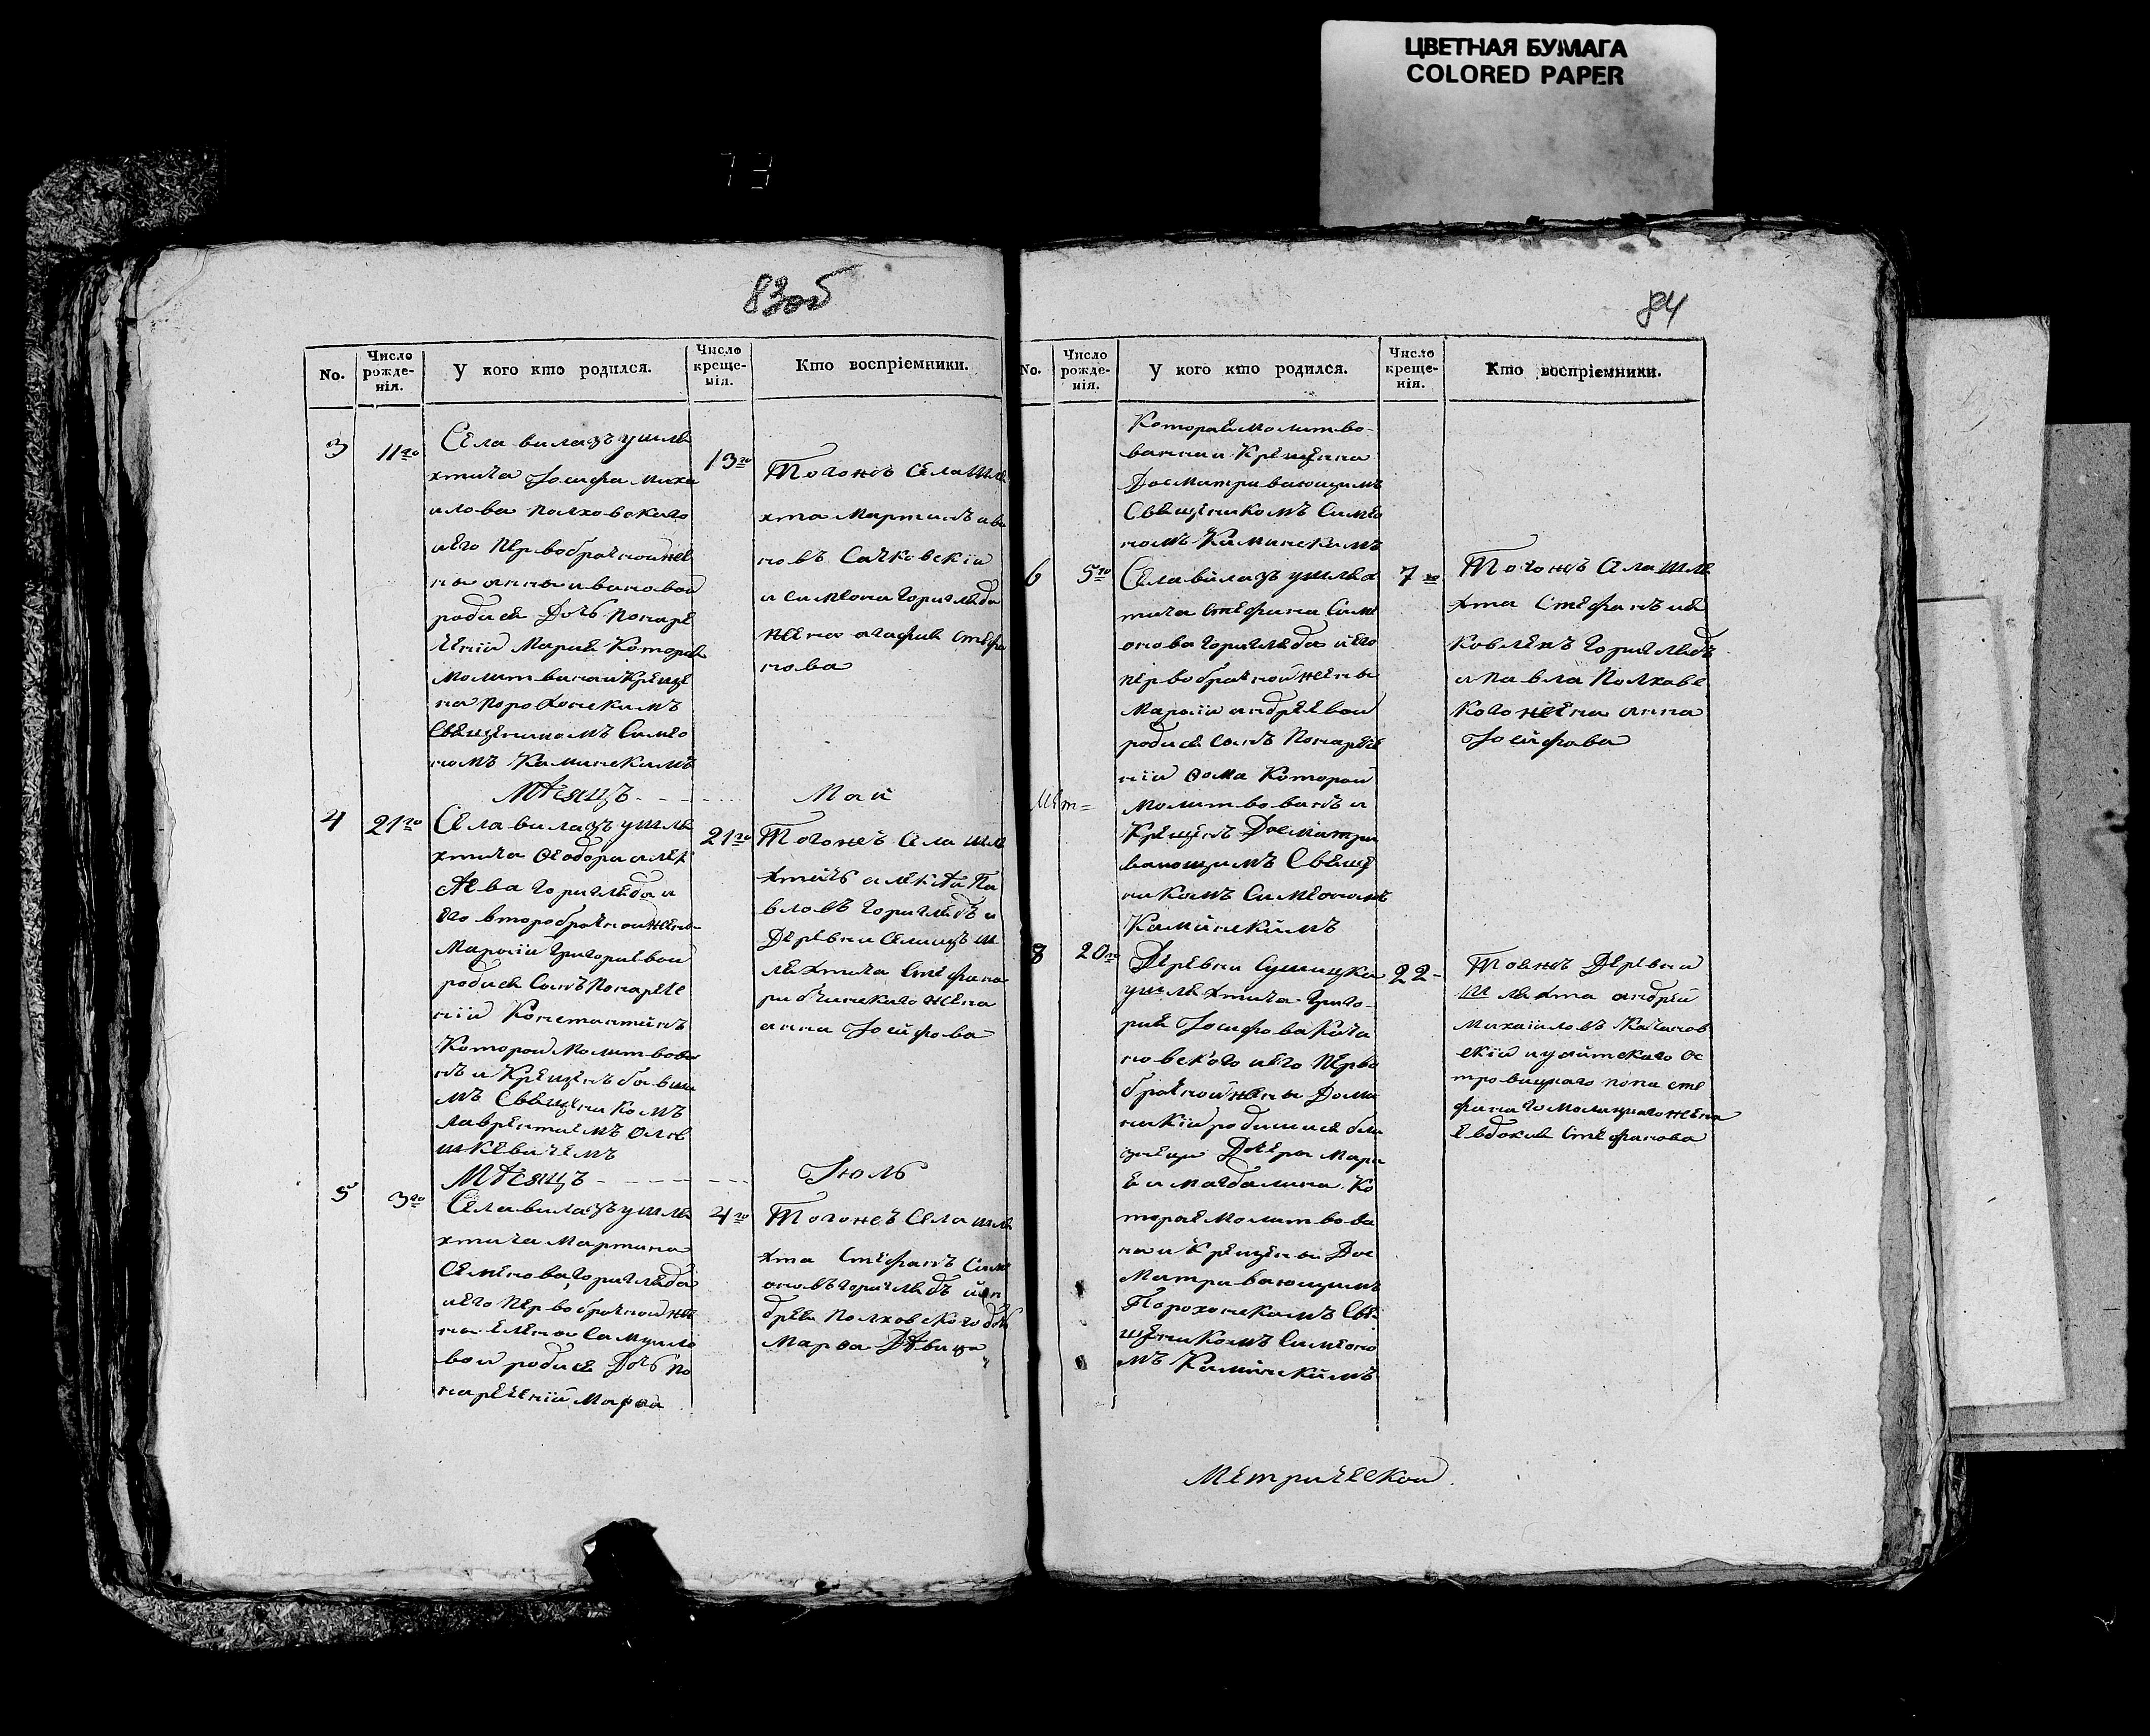 ЦВЕТНАЯ БУМАГА
COLORED PAPER
73
83об
No.
Число рожде-нія.
У кого кто родился.
Число креще-нія.
Кто воспріемники.
3
11го
Села вилазъ ушля
хтича Іосифа Миха
илова Полховского
иего первобрачной же
ны анны ивановой
родися Дочь понаре
чении Мария Которая
молитвинаи Креще
на Порохонскимъ
Священникомъ Симео
номъ Каминскимъ
13го
Тогожъ Села Шля
хта Мартинъ ива
новъ Сачковскїи
и симеона горигляда
жена агафия стефа
нова
Мѣсяцъ - - - - Маи
4
21го
Села вилазъ ушля
хтича Ѳеодора алек
сѣева горигляда и
его второбрачной жены
Марїи григориевои
родися Сынъ Понарече
нїи Константинъ
Которои Молитвова
нъ и Крещенъ бавши
мъ Священникомъ
лаврентиемъ
21го
Тогожъ Села шля
хтичь алексѣи Па
вловъ горигледъ и
Деревни Селищъ ш
ляхтича Стефана
жена
анна Іосифова
Мѣсяцъ - - - - Іюль
5
3го
Села вилазъ ушля
хтича Мартина
Семенова горигляда
иего первобрачной же
ны елены Самуило
вои родися Дочь по
наречении Марѳа
4го
Тогожъ Села шля
хта Стефанъ Сим
оновъ горигледъ и ан
дрея Полховского дочь
Марѳа Дѣвица
84
No.
Число рожде-нія.
У кого кто родился.
Число креще-нія.
Кто воспріемники.
Которая молитво-
ванна и Крещенна
Досматривающимъ
Священикомъ Симео
номъ Каминскимъ
6
5го
Села вилазъ ушлях
тича Стефана Сим
онова горигляда и его
первобрачной жены
Марїи андреевои
родися сынъ Понарече
нїи Ѳома Которои
Молитвованъ и
Крещенъ Досматри
вающимъ Свяще
никомъ Симеономъ
Каминскимъ
7го
Тогожъ Села шля
хта Стефанъ ия
ковлевъ горигледъ
и павла Полховс
кого жена анна
Іосифова
8
20го
Деревни Сушицка
ушляхтича григо-
рия Іосифова Кача
новского иего перво
брачной жены Дома
никїи родишися бли
знецы Дочери Мари
я и магдалина Ко
торые Молитвова
на и Крещены Дос
матривающимъ
Порохонскимъ Свя-
щеникомъ Симеоно
мъ Каминскимъ
22-
Тоежъ Деревни
Шляхта андрей
Михаиловъ Качанов
скїи и униятского ос
тровицкаго попа сте
фана жена
Евдокия Стефанова
Метрической